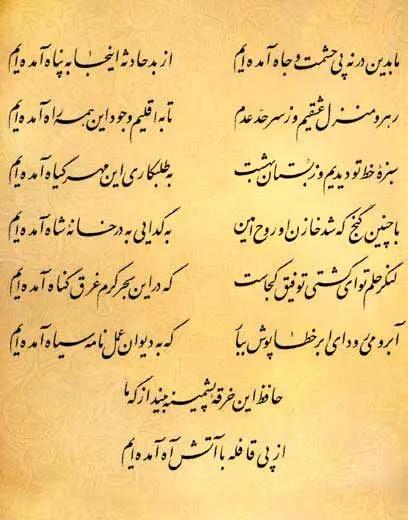 ما بدین در نه پی حشمت و جاه آمده‌ایم از بد حادثه اینجا به پناه آمده‌ایم
رهرو منزل عشقیم و ز سرحد عدم تا به اقلیم وجود این همه راه آمده‌ایم
سبزهٔ خط تو دیدیم و ز بستان بهشت به طلبکاری این مهر گیاه آمده‌ایم
با چنین گنج که شد خازن او روح امین به گدایی به در خانهٔ شاه آمده‌ایم
لنگر حلم تو ای کشتی توفیق کجاست که در این بحر کرم غرق گناه آمده‌ایم
آبرو می‌رود ای ابر خطاپوش ببار که به دیوان عمل نامه سیاه آمده‌ایم
حافظ این خرقهٔ پشمینه بینداز که ما
از پی قافله با آتش آه آمده‌ایم